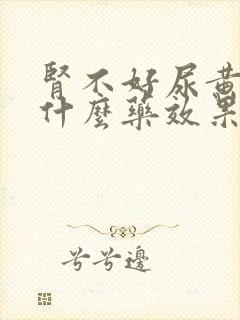 腎不好尿黃
什麼藥效果
兮兮邊